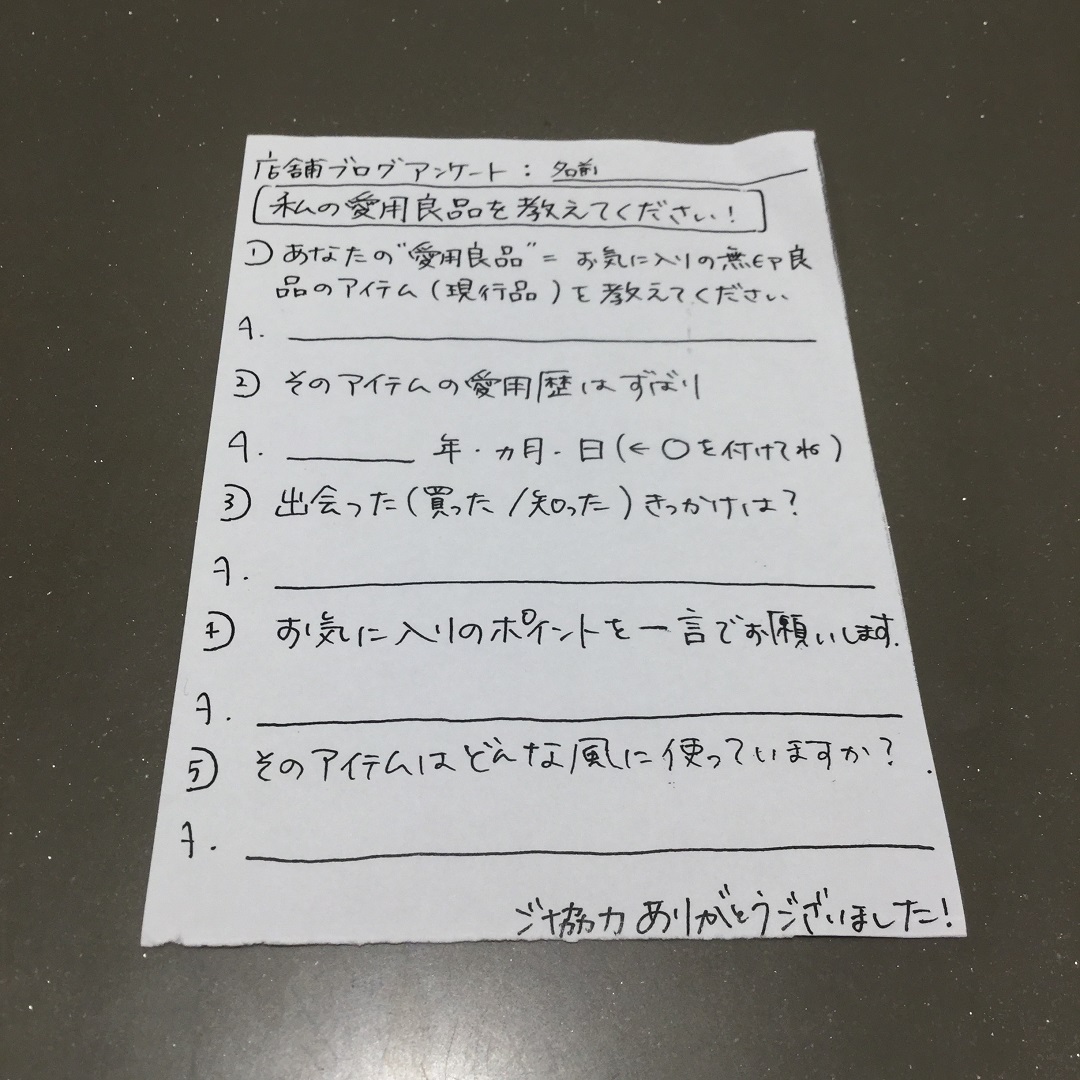 店舗ブログアンケート：名前
私の愛用良品を教えてください！
① あなたの"愛用良品"＝お気に入りの無印良
品のアイテム（現行品）を教えてください
A.
② そのアイテムの愛用歴はずばり
A. 年・ヵ月・日（←○を付けてね）
③ 出会った（買った/知った）きっかけは？
A.
④ お気に入りのポイントを一言でお願いします.
A.
⑤ そのアイテムはどんな風に使っていますか？
A.
ご協力ありがとうございました！